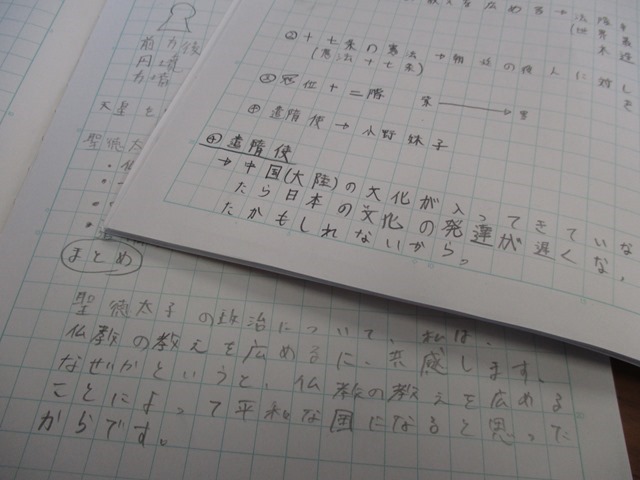 教えを広める→法隆寺
(世界最
木造
②十七条の憲法→朝廷の役人に対し
(憲法十七条)
③冠位十二階 紫 → 黒
④遣隋使→小野妹子
④遣隋使
→中国(大陸)の文化が入ってきていな
たら日本の文化の発達が遅くな、
たかもしれないから。
前方後
円墳
古墳
天皇を
聖徳太
まとめ
聖徳太子の政治について、私は、
仏教の教えを広めるに、共感します。
なぜかというと、仏教の教えを広める
ことによって平和な国になると思った
からです。